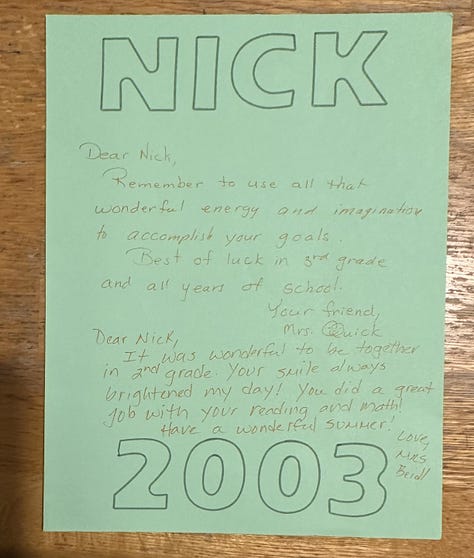 NICK
Dear Nick,
Remember to use all that
wonderful energy and imagination
to accomplish your goals.
Best of luck in 3rd grade
and all years of school.
Your friend,
Mrs. Quick
Dear Nick,
It was wonderful to be together
in 2nd grade. Your smile always
brightened my day! You did a great
job with your reading and math!
Have a wonderful summer!
Love,
Mrs.
2003